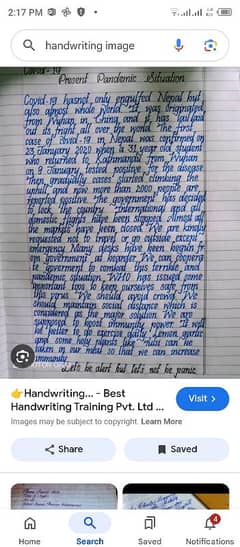 2:17 PM
handwriting image
Covid-19
Present Pandemic situation
Covid-19 hasnot only engulfed Nepal but
also almost whole world. It was originated
from Wuhan in China and it has galloped
out its fright all over the world. The first
case of covid-19 in Nepal was confirmed on
23 January 2020 when a 31 year old student
who returned to Kathmandu from Wuhan
on 9 January, tested positive for the disease
Then gradually cases started climbing the
uphill and now more than 2000 people are
reported positive. The government has decided
to lock the country. International and all
domestic flights have been stopped. Almost all
the markets have been closed. We are kindly
requested not to travel or go outside except
emergency. Many
government
goverment to combat this terrible and
pandemic situation. WHO has issued some
important tips to keep ourselves safe from
this virus. We should avoid crowd. We
should maintain social distance which is
considered as the major solution. We are
supposed to boost immunity power. It will
be better to do exercise daily. Lemon, garlic
and some holy plants like can be
taken in our meal so that we can increase
immunity.
Lets be alert but let's not be panic.
👉Handwriting... - Best
Handwriting Training Pvt. Ltd ...
Visit >
Images may be subject to copyright. Learn More
Share
Saved
Home
Search
Saved
Notifications
4